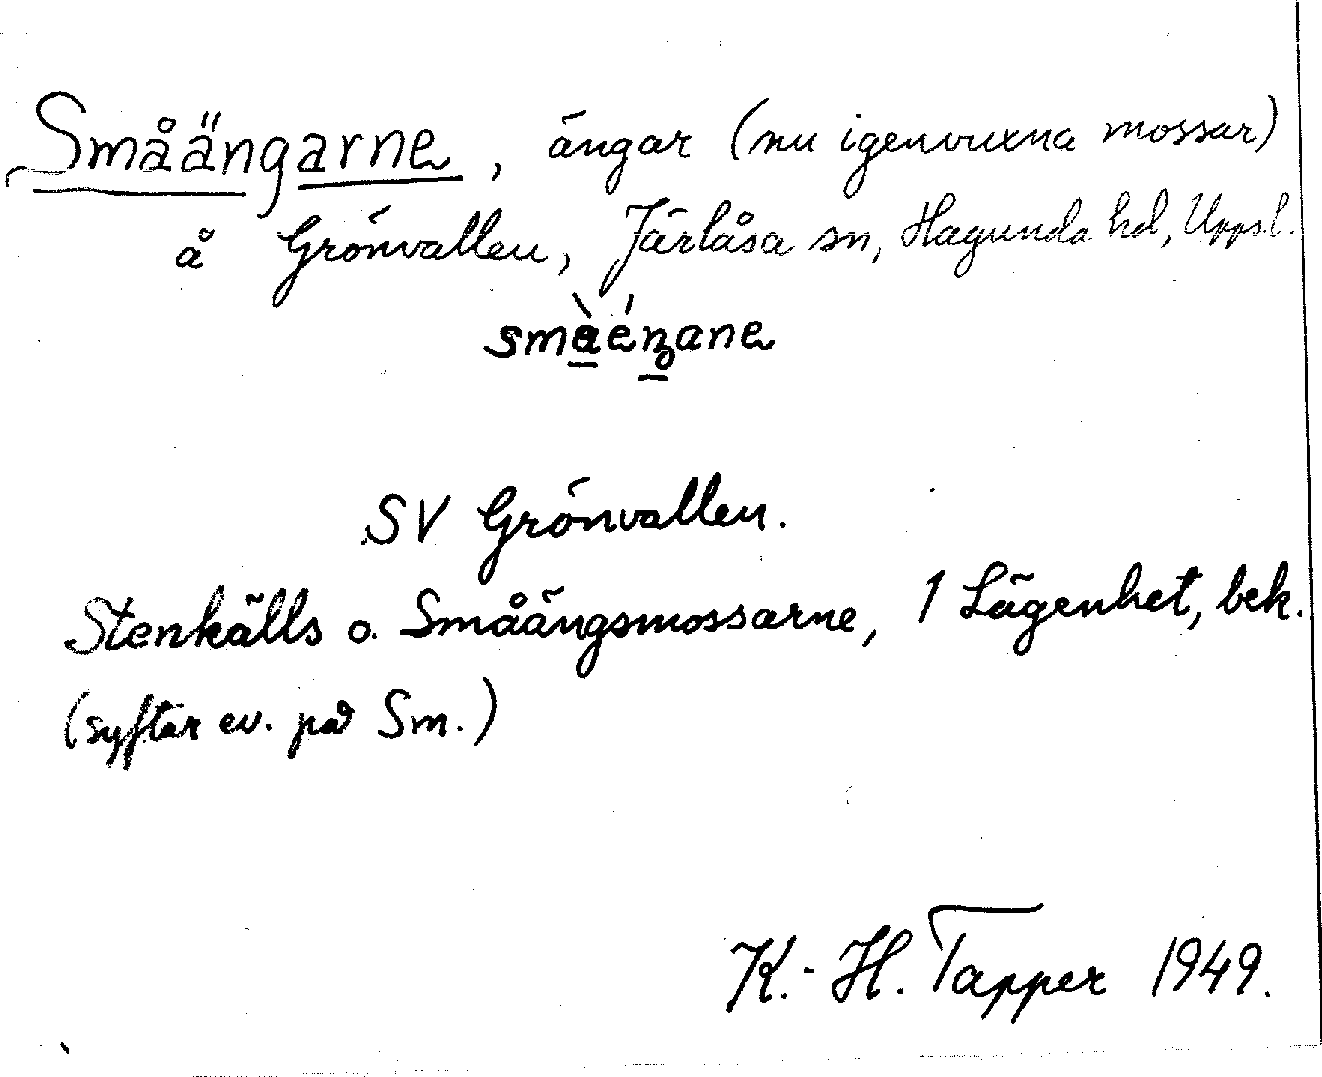 Småängarne, ängar (nu igenvuxna mossar)
å Grönvallen, Järlåsa sn, Hagunda hd, Uppsl.
SV Grönvallen.
Stenkälls o. Småängsmossarne, 1 Lägenhet, bek.
(syftar ev. på Sm.)
K.-H. Tapper 1949.